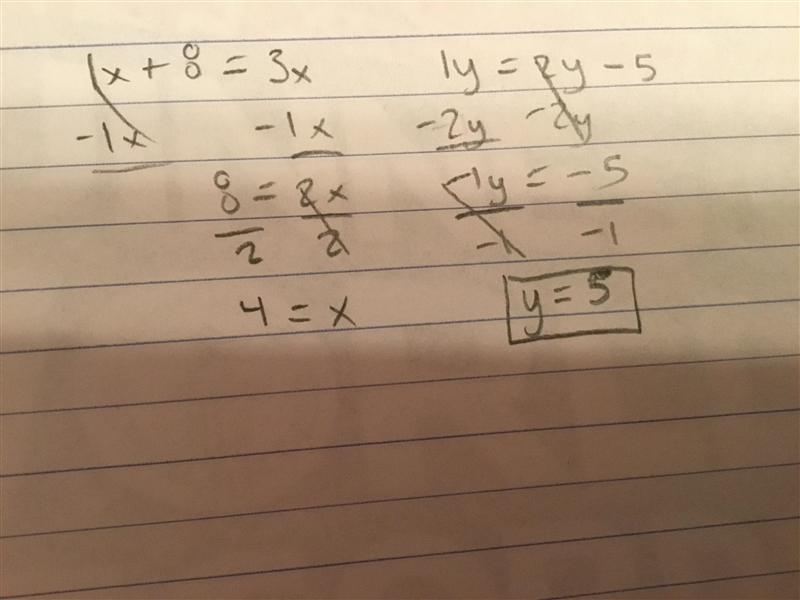 1x + 8 = 3x
-1x -1x
8 = 2x
2 2
4 = x
1y = 2y - 5
-2y -2y
-1y = -5
-1 -1
y = 5